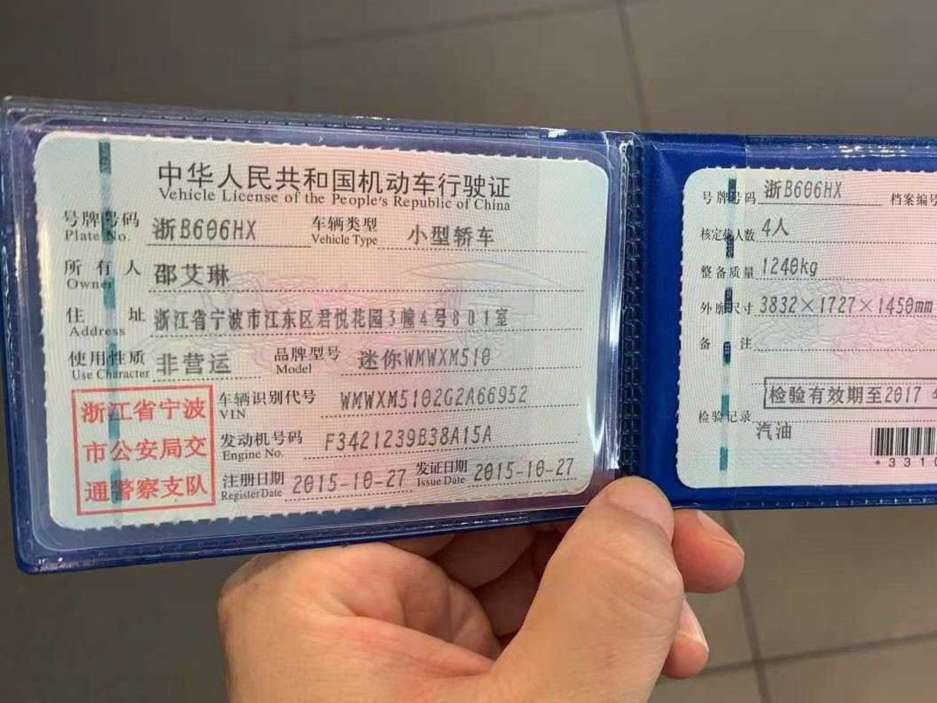 中华人民共和国机动车行驶证
Vehicle License of the People's Republic of China
号牌号码 浙B606HX 车辆类型 小型轿车
Plate No. Vehicle Type
所有人 邵艾琳
Owner
住址 浙江省宁波市江东区君悦花园3幢4号801室
Address
使用性质 非营运 品牌型号 迷你WMWXM510
Use Character Model
浙江省宁波
市公安局交
通警察支队
车辆识别代号 WMWXM5102G2A66952
VIN
发动机号码 F3421239B38A15A
Engine No.
注册日期 2015-10-27 发证日期 2015-10-27
Register Date Issue Date
号牌号码 浙B606HX 档案编号
核定载人数 4人
整备质量 1240kg
外廓尺寸 3832×1727×1450mm
备注
检验有效期至2017
检验记录
汽油
*3310